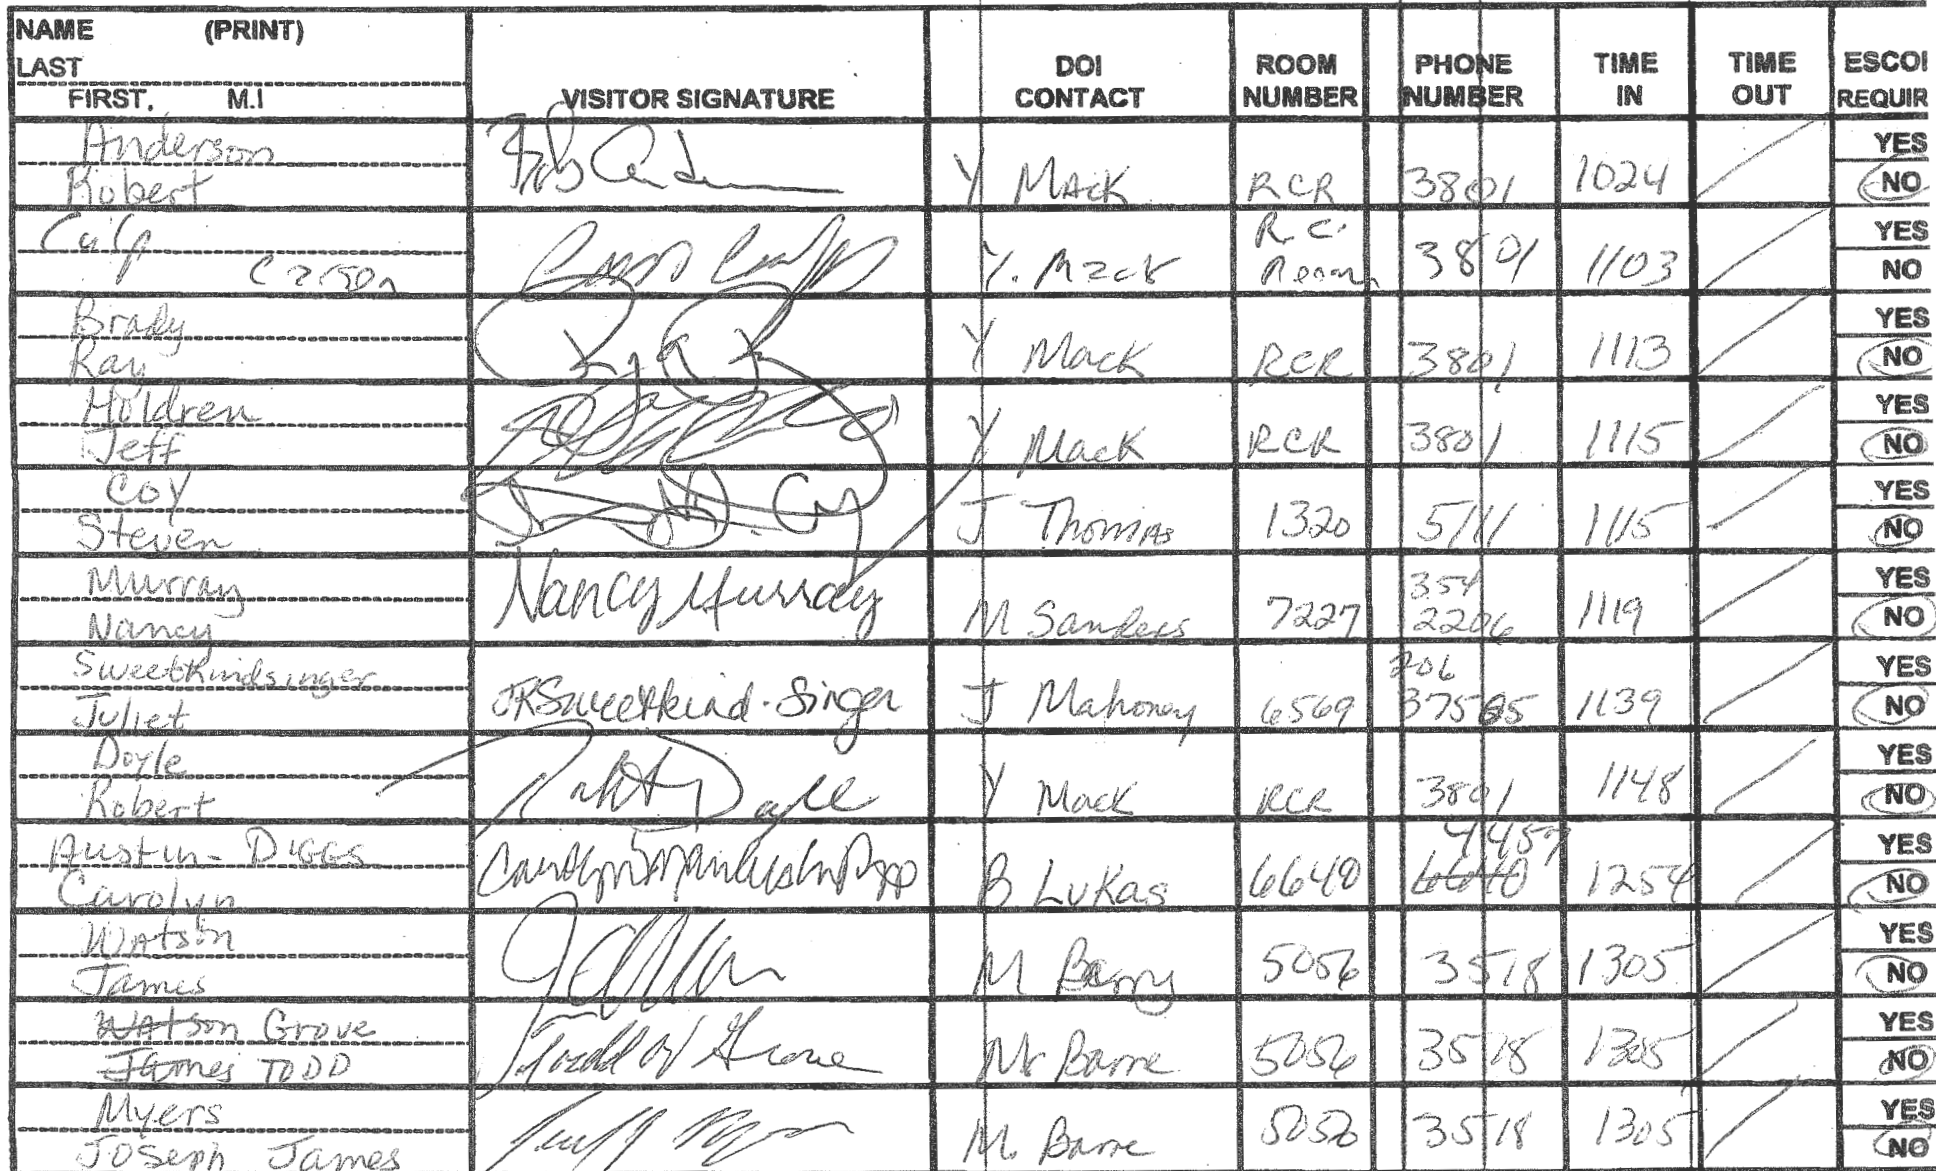 NAME (PRINT)
LAST
FIRST, M.I
VISITOR SIGNATURE
DOI CONTACT
ROOM NUMBER
PHONE NUMBER
TIME IN
TIME OUT
ESCOI REQUIR
Anderson
Robert
Y Mack RCR 3801 1024
YES
NO
Culp
Carson
Y. Mack R.C. Room 3801 1103
YES
NO
Brady
Ray
Y Mack RCR 3801 1113
YES
NO
Holdren
Jeff
Y Mack RCR 3801 1115
YES
NO
Coy
Steven
J Thomas 1320 5111 1115
YES
NO
Murray
Nancy
Nancy Murray
M Sanders 7227 354 2206 1119
YES
NO
Sweetkindsinger
Juliet
JRSweetkind-Singer
J Mahoney 6569 206 1139
YES
NO
Doyle
Robert
Robert Doyle
Y Mack RCR 3801 1148
YES
NO
Austin-Diggs
Carolyn
B Lukas 6640 4457 6640 1254
YES
NO
Watson
James
M Barry 5056 3518 1305
YES
NO
Watson Grove
James TODD
Todd W Grove
M Barre 5056 3518 1305
YES
NO
Myers
Joseph James
M Barre 5056 3518 1305
YES
NO